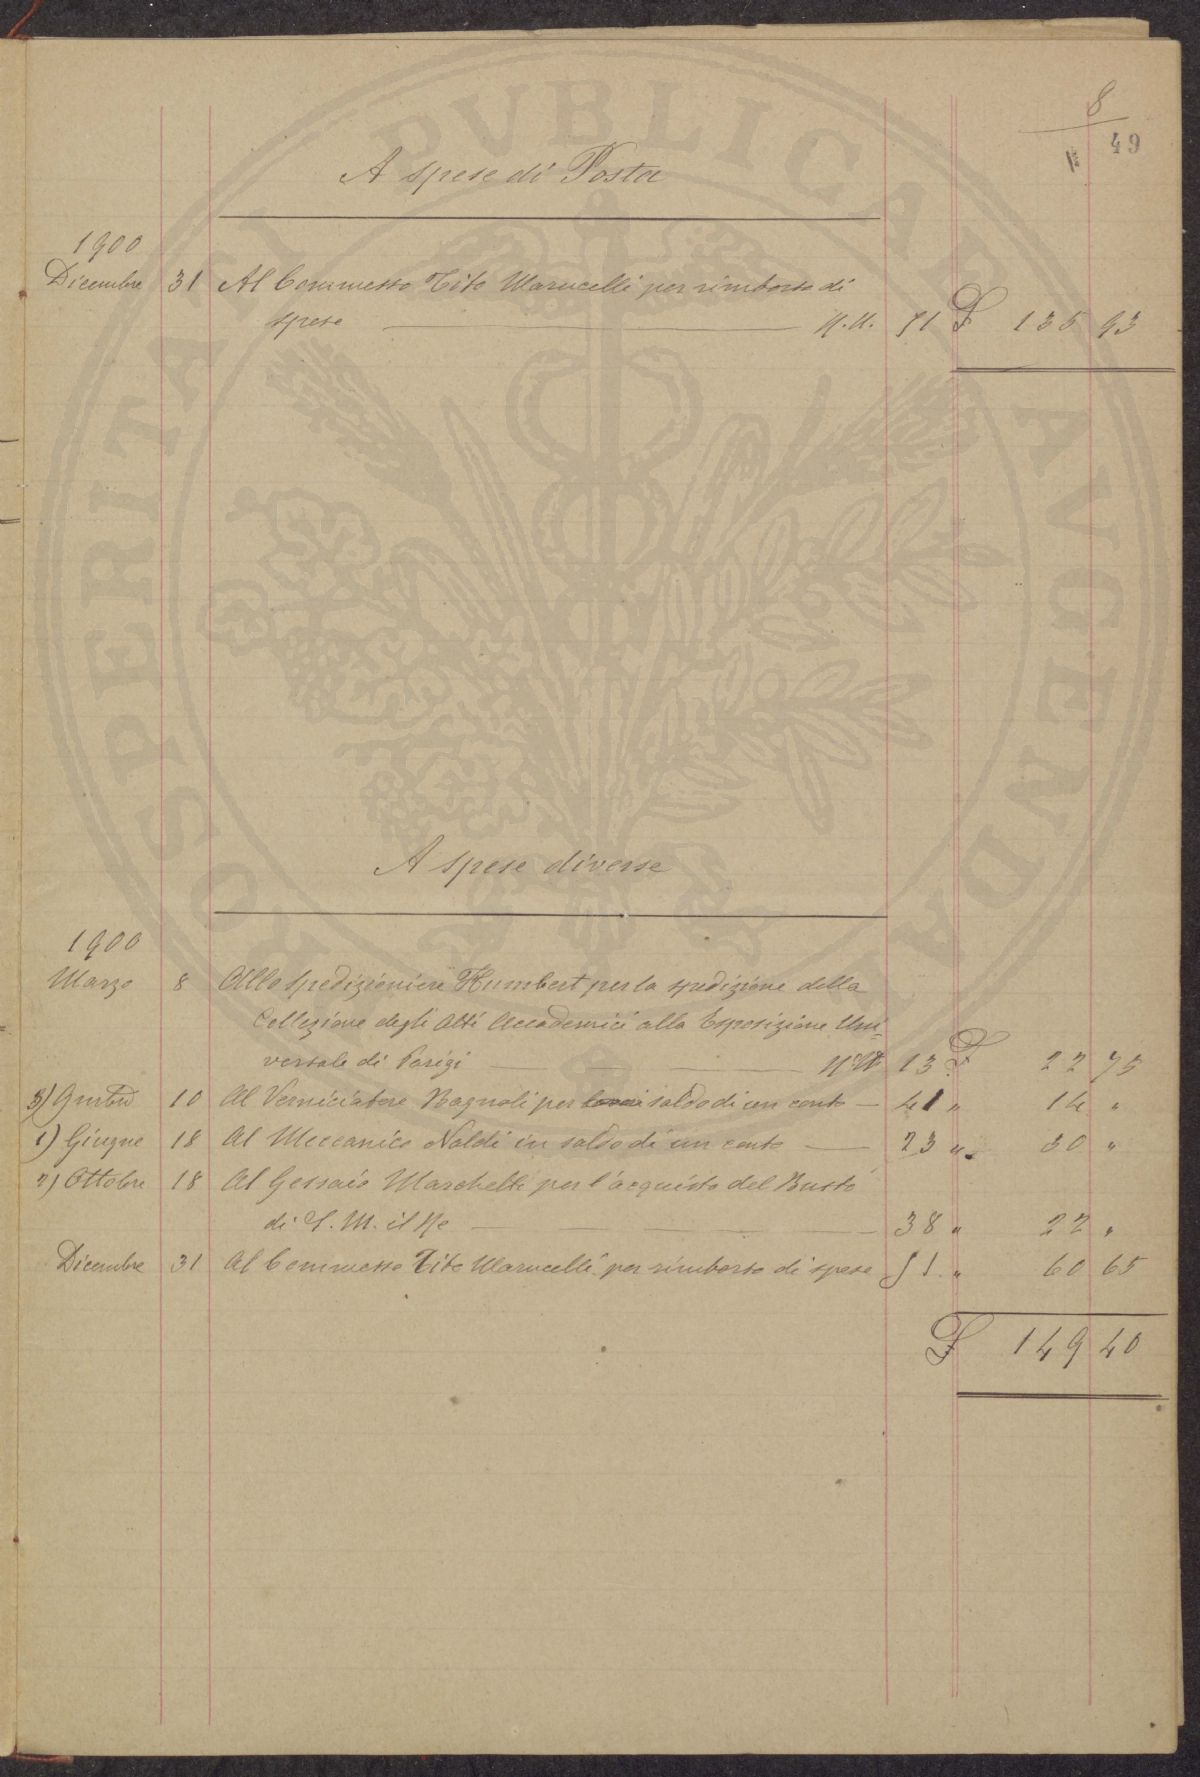 8
49
A spese di Posta
1900
Dicembre 31 Al Commesso Tito Marucelli per rimborso di
spese N.A. 51 £ 135 93
A spese diverse
1900
Marzo 8 Allo spedizioniere Humbert per la spedizione della
Collezione degli Atti Accademici alla Esposizione Uni-
versale di Parigi 13 £ 22 75
3) 10 Al Verniciatore Bagnoli per saldo di un conto 41 " 14 "
1) Giugno 18 Al Meccanico Naldi in saldo di un conto 23 " 30 "
2) Ottobre 18 Al Gessaio Marchelli per l'acquisto del Busto
di S. M. il Re 38 " 22 "
Dicembre 31 Al Commesso Tito Marucelli per rimborso di spese 51 " 60 65
£ 149 40
PROSPERITATI PUBLICAE AVGENDAE